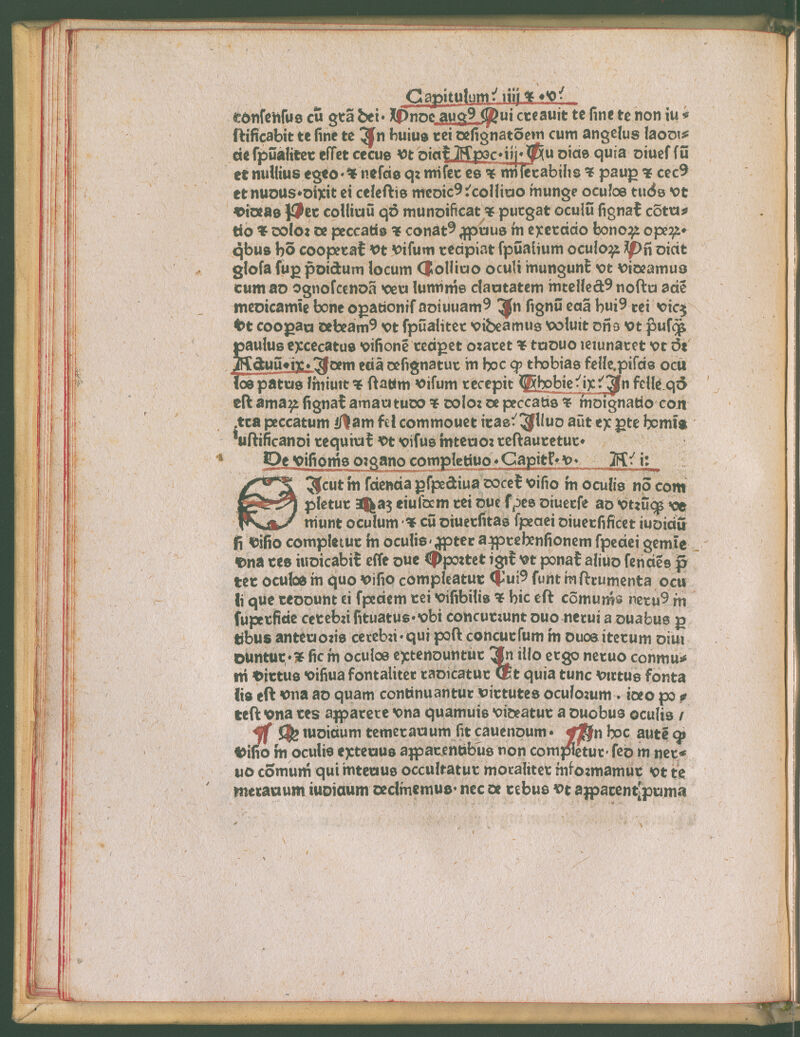 Capitulum: iiij ⁊ .v:
consensus cū grā dei. Unde augꝰ Qui creauit te sine te non iu⸗
stificabit te sine te In huius rei designatōem cum angelus laodi⸗
cie spūaliter esset cecus vt dicit̄ Apoc.iij. Tu dicis quia diues sū
et nullius egeo. ⁊ nescis qꝛ miser es ⁊ miserabilis ⁊ paup̲ ⁊ cecꝰ
et nudus.dixit ei celestis medicꝰ:collirio inunge oculos tuos vt
videas Per colliriū qd̄ mundificat ⁊ purgat oculū signat̄ cōtri⸗
tio ⁊ doloꝛ de peccatis ⁊ conatꝰ ꝓprius in exercicio bonoꝝ opeꝝ.
q̇bus hō cooperat̄ vt visum recipiat spūalium oculoꝝ Vn̄ dicit
glosa sup̲ p̄dictum locum Collirio oculi inungunt̄ vt videamus
cum ad ꝯgnoscendā veri luminis claritatem intellectꝰ nostri aciē
medicamīe bone oꝑationis adiuuamꝰ In signū eciā huiꝰ rei vicꝫ
vt cooꝑari debeamꝰ vt spūaliter videamus voluit dn̄s vt p̄fusꝙ̄
paulus excecatus visionē reciꝑet oꝛaret ⁊ triduo ieiunaret vt dr̄
Actuū.ix. Idem eciā designatur in hoc ꝙ thobias felle piscis ocu
los patris liniuit ⁊ statim visum recepit Thobie: ix: In felle qd̄
est amaꝝ signat̄ amaritudo ⁊ doloꝛ de peccatis ⁊ indignatio con
tra peccatum Nam fel commouet iras: Illud aūt ex ꝑte homīs
iustificandi requirit̄ vt visus interioꝛ restauretur.
De visionis oꝛgano completiuo. Capitl̄. v. A: i:
Sicut in sciencia ꝑspectiua docet̄ visio in oculis nō com
pletur Naꝫ eiusdem rei due spēs diuerse ad vtrūqꝫ ve
niunt oculum. ⁊ cū diuersitas speciei diuersificet iudiciū
si visio completur in oculis. ꝓpter apprehensionem speciei gemīe
vna res iudicabit̄ esse due Opoꝛtet igit̄ vt ponat̄ aliud senciēs p̄
ter oculos in quo visio compleatur Cuiꝰ sunt instrumenta ocu
li que reddunt ei speciem rei visibilis ⁊ hic est cōmunis neruꝰ in
superficie cerebri situatus.vbi concurrunt duo nerui a duabus p̲
tibus anterioꝛis cerebri.qui post concursum in duos iterum diui
duntur.⁊ sic in oculos extenduntur In illo ergo neruo conmu⸗
ni virtus visiua fontaliter radicatur Et quia tunc virtus fonta
lis est vna ad quam continuantur virtutes oculoꝛum . ideo po⸗
test vna res apparere vna quamuis videatur a duobus oculis /
¶ Qꝫ iudicium temerarium sit cauendum. ¶ In hoc autē ꝙ
visio in oculis exterius apparentibus non completur.sed in ner⸗
uo cōmuni qui interius occultatur moraliter infoꝛmamur vt te
merarium iudicium declinemus. nec de rebus vt apparent prima